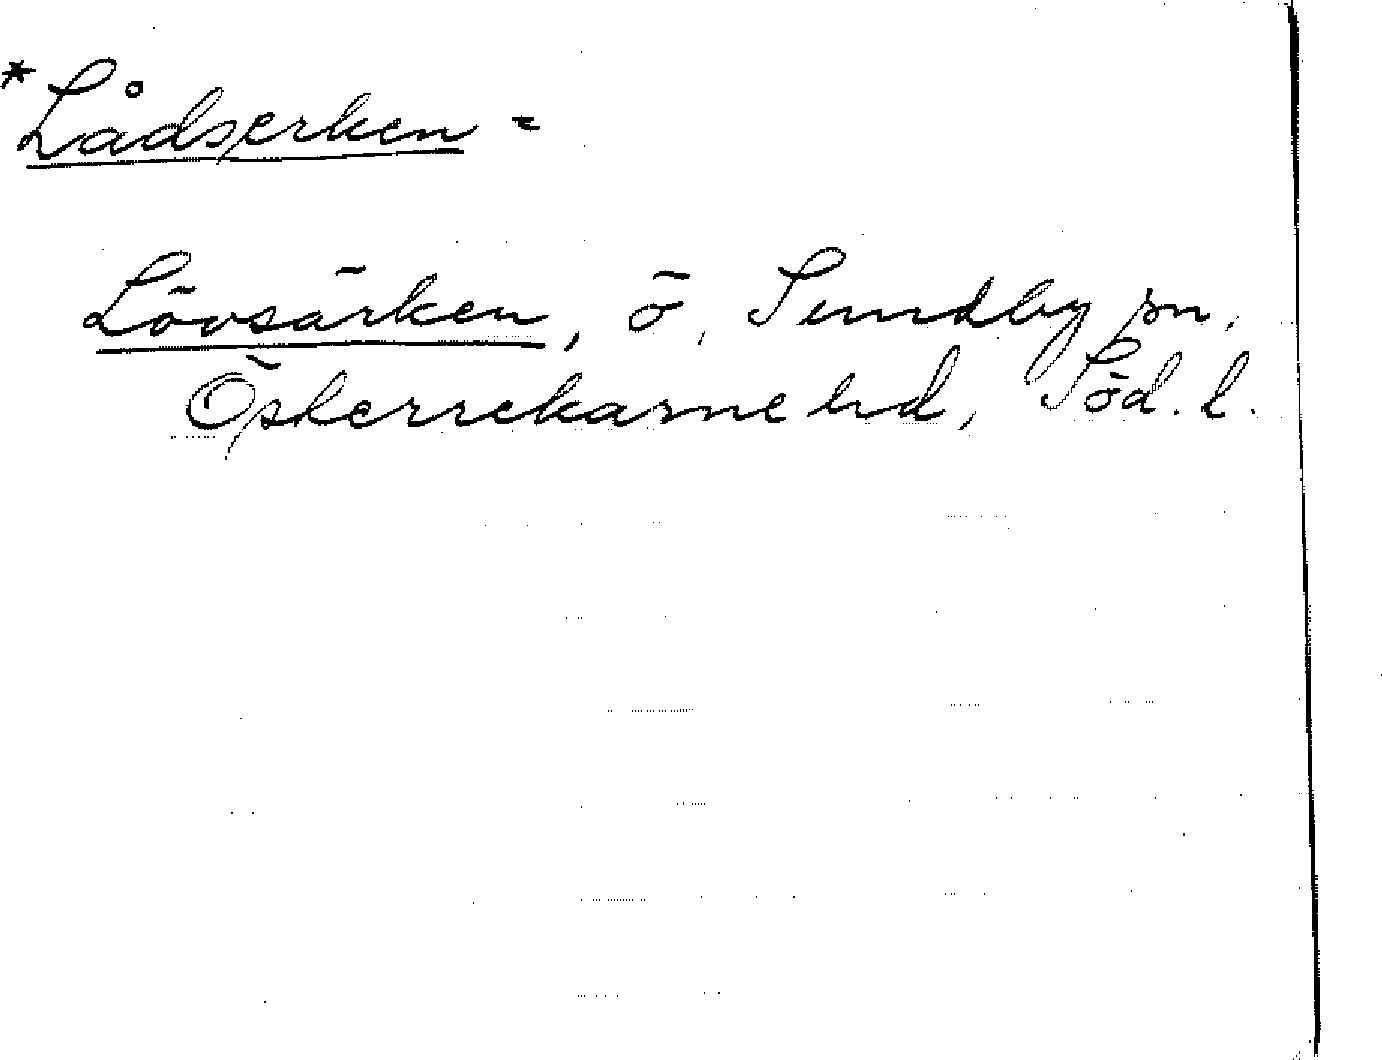 *Lådserken =
Lövsärken, ö, Sundby sn,
Österrekarne hd, Söd. l.